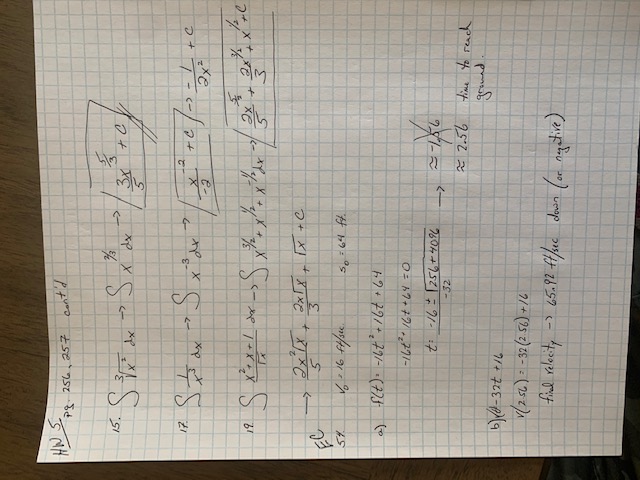 HW 5 pg. 256, 257 cont'd
15. ∫ ∛x² dx → ∫ x^2/3 dx → 3x^5/3 / 5 + C
17. ∫ 1/x³ dx → ∫ x³ dx → x^-2 / -2 + C → -1/2x² + C
19. ∫ x²+x+1 / √x dx → ∫ x^3/2 + x^1/2 + x^-1/2 dx → 2x^5/2 / 5 + 2x^3/2 / 3 + x^1/2 + C
→ 2x²√x / 5 + 2x√x / 3 + √x + C
EC
54. V₀ = 16 ft/sec S₀ = 64 ft.
a) f(t) = -16t² + 16t + 64
-16t² + 16t + 64 = 0
t = -16 ± √256 + 4096 / -32 → ≈ -1.56
≈ 2.56 time to reach
ground.
b) -32t + 16
V(2.56) = -32(2.56) + 16
final velocity → 65.92 ft/sec down (or negative)